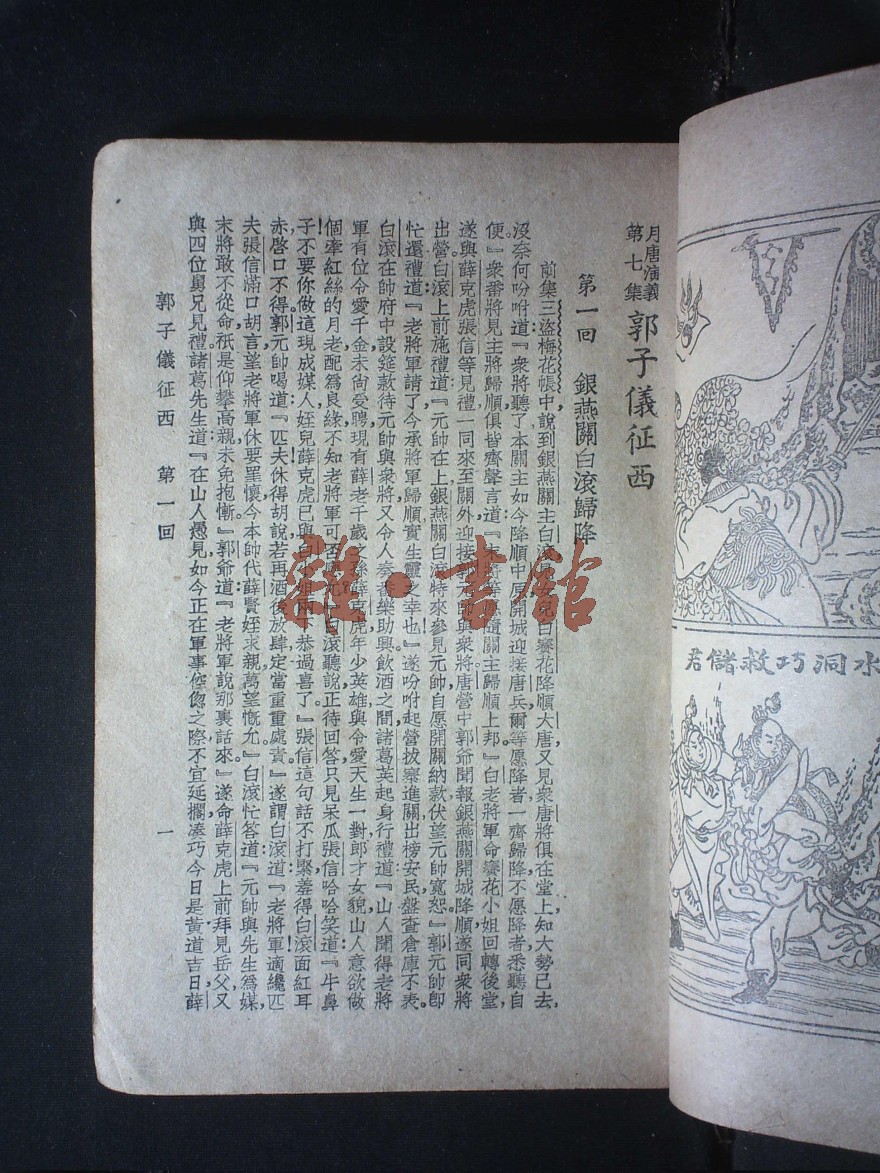 月唐演義
第七集
郭子儀征西
第一回 銀燕關白滾歸降
前集三盜梅花帳中說到銀燕關主白滾見女兒白賽花降順大唐又見衆唐將俱在堂上知大勢已去
沒奈何吩咐道『衆將聽了本關主如今降順中原開城迎接唐兵爾等愿降者一齊歸降不愿降者悉聽自
便』衆番將見主將歸順俱皆齊聲言道『末將等愿隨關主歸順上邦』白老將軍命賽花小姐回轉後堂
遂與薛克虎張信等見禮一同來至關外迎接郭元帥與衆將唐營中郭爺聞報銀燕關開城降順遂同衆將
出營白滾上前施禮道『元帥在上銀燕關白滾特來參見元帥自愿開關納款伏望元帥寬恕』郭元帥卽
忙還禮道『老將軍請了今承將軍歸順實生靈之幸也』遂吩咐起營拔寨進關出榜安民盤查倉庫不表
白滾在帥府中設筵款待元帥與衆將又令人奏樂助興飲酒之間諸葛英起身行禮道『山人聞得老將
軍有位令愛千金未尙受聘現有薛老千歲之孫薛克虎年少英雄與令愛天生一對郎才女貌山人意欲做
個牽紅絲的月老配爲良緣不知老將軍可否應允』白滾聽說正待回答只見呆瓜張信哈哈笑道『牛鼻
子不要你做這現成媒人姪兒薛克虎已與白小姐恭過喜了』張信這句話不打緊羞得白滾面紅耳
赤啓口不得郭元帥喝道『匹夫休得胡說若再酒後放肆定當重重處責』遂謂白滾道『老將軍適纔匹
夫張信滿口胡言望老將軍休要罣懷今本帥代薛賢姪求親萬望慨允』白滾忙答道『元帥與先生爲媒
末將敢不從命祇是仰攀高親未免抱慚』郭爺道『老將軍說那裏話來』遂命薛克虎上前拜見岳父又
與四位舅兄見禮諸葛先生道『在山人愚見如今正在軍事倥偬之際不宜延擱湊巧今日是黃道吉日薛
郭子儀征西 第一回 一
水洞巧救儲君
雜·書館